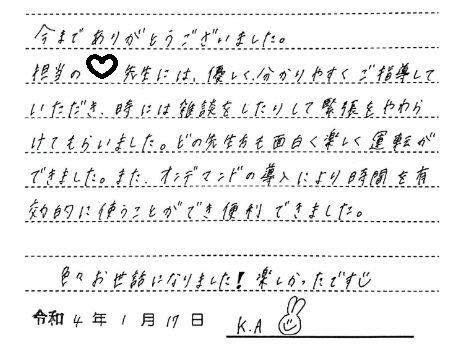 今までありがとうございました。
担当の♡先生には、優しく、分かりやすくご指導して
いただき、時には雑談をしたりして緊張をやわら
けてもらいました。どの先生方も面白く楽しく運転が
できました。また、オンデマンドの導入により時間を有
効的に使うことができ便利できました。
色々お世話になりました！楽しかったです
令和4年1月17日
K.A